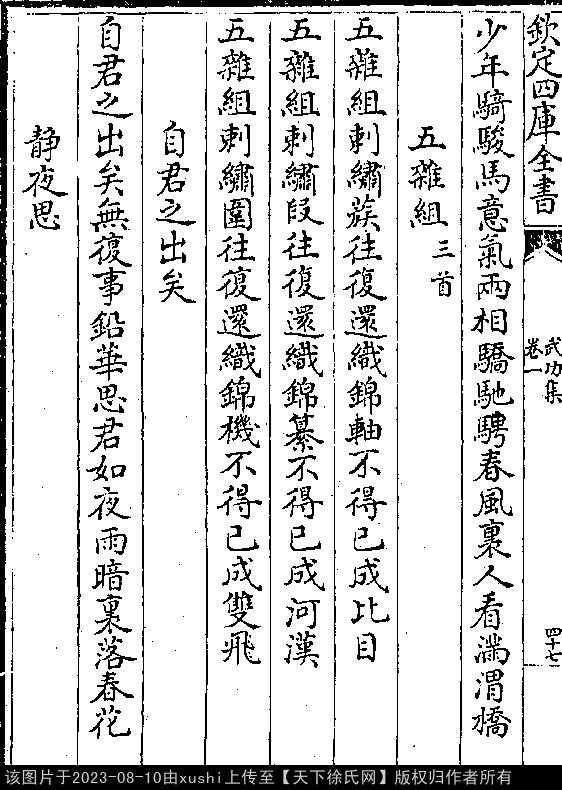 欽定四庫全書
武功集
卷一
四十七
少年騎駿馬意氣兩相驕馳騁春風裏人看滿渭橋
五雜組三首
五雜組刺繡蔟往復還織錦軸不得已成比目
五雜組刺繡段往復還織錦纂不得已成河漢
五雜組刺繡圍往復還織錦機不得已成雙飛
自君之出矣
自君之出矣無復事鉛華思君如夜雨暗裏落春花
靜夜思
该图片于2023-08-10由xushi上传至【天下徐氏网】版权归作者所有